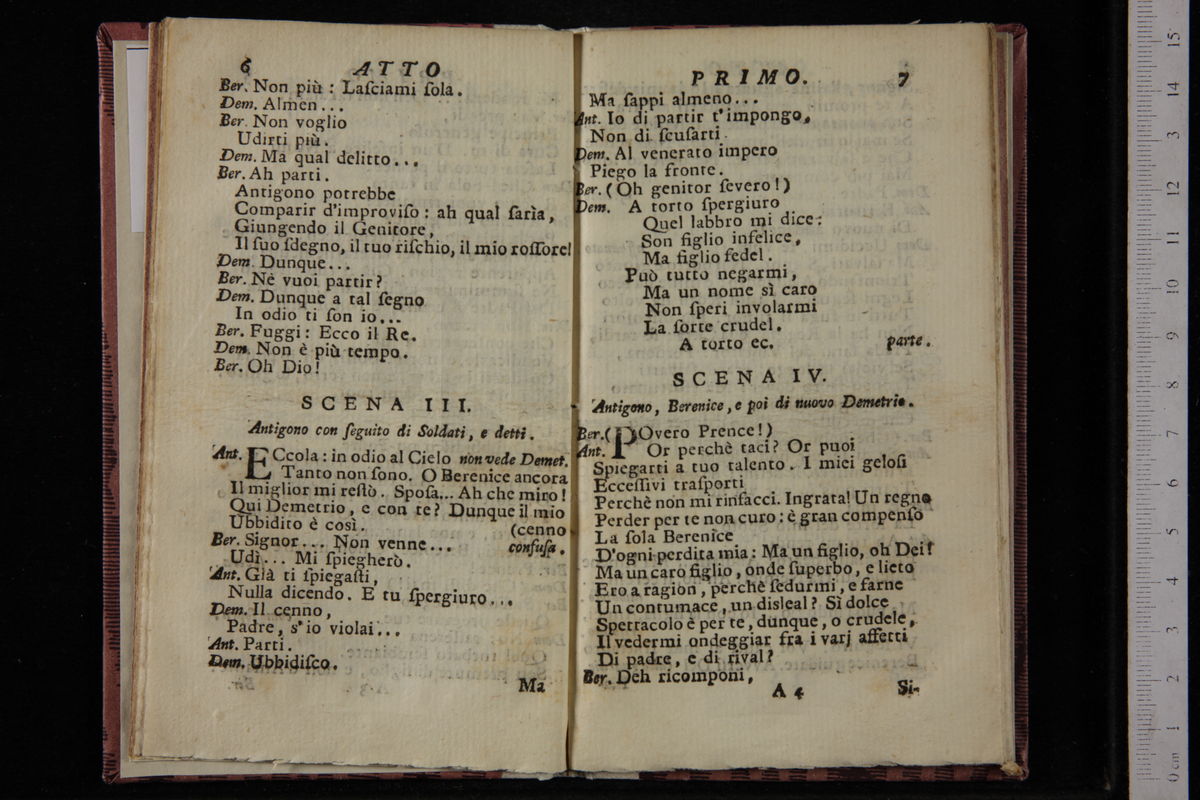 6 ATTO
Ber. Non più : Laſciami ſola.
Dem. Almen...
Ber. Non voglio
Udirti più.
Dem. Ma qual delitto...
Ber. Ah parti.
Antigono potrebbe
Comparir d'improviſo : ah qual ſarìa,
Giungendo il Genitore,
Il ſuo ſdegno, il tuo riſchio, il mio roſſore!
Dem. Dunque...
Ber. Nè vuoi partir?
Dem. Dunque a tal ſegno
In odio ti ſon io...
Ber. Fuggi: Ecco il Re.
Dem. Non è più tempo.
Ber. Oh Dio!
SCENA III.
Antigono con ſeguito di Soldati, e detti.
Ant. ECcola : in odio al Cielo non vede Demet.
Tanto non ſono. O Berenice ancora
Il miglior mi reſtò. Spoſa... Ah che miro!
Qui Demetrio, e con te? Dunque il mio
Ubbidito è così. (cenno
Ber. Signor... Non venne... confuſa.
Udì... Mi ſpiegherò.
Ant. Già ti ſpiegaſti,
Nulla dicendo. E tu ſpergiuro...
Dem. Il cenno,
Padre, s'io violai...
Ant. Parti.
Dem. Ubbidiſco.
Ma
PRIMO. 7
Ma ſappi almeno...
Ant. Io di partir t'impongo,
Non di ſcuſarti.
Dem. Al venerato impero
Piego la fronte.
Ber. (Oh genitor ſevero!)
Dem. A torto ſpergiuro
Quel labbro mi dice:
Son figlio infelice,
Ma figlio fedel.
Può tutto negarmi,
Ma un nome sì caro
Non ſperi involarmi
La ſorte crudel.
A torto ec. parte.
SCENA IV.
Antigono, Berenice, e poi di nuovo Demetrio.
Ber. (POvero Prence!)
Ant. Or perchè taci? Or puoi
Spiegarti a tuo talento. I miei geloſi
Ecceſſivi traſporti
Perchè non mi rinfacci. Ingrata! Un regno
Perder per te non curo : è gran compenſo
La ſola Berenice
D'ogni perdita mia : Ma un figlio, oh Dei!
Ma un caro figlio, onde ſuperbo, e lieto
Ero a ragion, perchè ſedurmi, e farne
Un contumace, un disleal? Sì dolce
Spettacolo è per te, dunque, o crudele,
Il vedermi ondeggiar fra i varj affetti
Di padre, e di rival?
Ber. Deh ricomponi,
A 4 Si-
15
14
13
12
11
10
9
8
7
6
5
4
3
2
1
0 cm